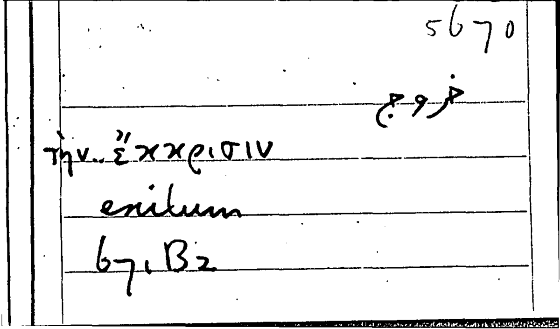 5670
خروج
τὴν.. ἔκκρισιν
exitum
67, B2